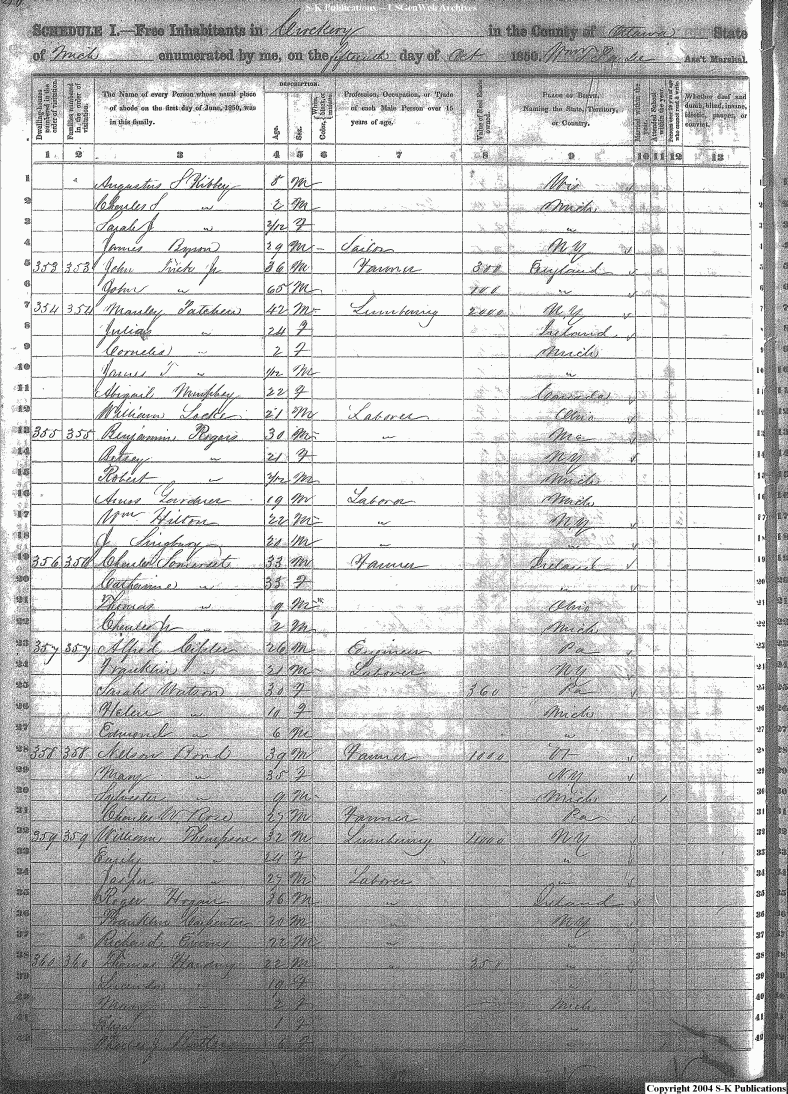 S-K Publications - USGenWeb Archives
SCHEDULE I.—Free Inhabitants in Crockery in the County of Ottawa State
of Mich enumerated by me, on the fifteenth day of Oct 1850. Ass't Marshal.
DESCRIPTION.
Dwelling-houses numbered in the order of visitation.
Families numbered in the order of visitation.
The Name of every Person whose usual place of abode on the first day of June, 1850, was in this family.
Age.
Sex.
Profession, Occupation, or Trade of each Male Person over 15 years of age.
Value of Real Estate owned.
PLACE OF BIRTH. Naming the State, Territory, or Country.
Married within the year.
Attended School within the year.
Whether deaf and dumb, blind, insane, idiotic, pauper, or convict.
1 2 3 4 5 6 7 8 9 10 11 12 13
1 Augustus S Kibbey 8 M Wis
2 Charles S " 2 M Mich
3 Sarah J " 2/12 F "
4 James Byron 29 M Sailor N.Y
5 353 353 John Jr 36 M Farmer 300 England
6 John " 65 M 100 "
7 354 354 Manley Patchen 42 M Lumbering 2000 N.Y
8 Julia " 24 F Ireland
9 Cornelia " 2 F Mich
10 James T " 1/12 M "
11 Abigail 22 F Canada
12 William Locke 21 M Laborer Ohio
13 355 355 Benjamin Rogers 30 M " Me
14 Betsey " 21 F N.Y
15 Robert " 2/12 M Mich
16 Amos Gardner 19 M Laborer Mich
17 Wm Hilton 22 M " N.Y
18 J 20 M " "
19 356 356 Charles Somerset 33 M Farmer Ireland
20 Catharine " 35 F "
21 Thomas " 9 M Ohio
22 Charles Jr " 2 M Mich
23 357 357 Alfred 26 M Engineer Pa
24 Franklin " 21 M Laborer N.Y
25 Sarah Watson 30 F 360 Pa
26 Helen " 10 F Mich
27 Edmond " 6 M "
28 358 358 Nelson Bond 39 M Farmer 1000 Vt
29 Mary " 35 F N.Y
30 Sylvester " 9 M Mich 1
31 Charles W. Rose 27 M Farmer Pa
32 359 359 William Thompson 32 M Lumbering 4000 N.Y
33 Emily " 24 F "
34 Jasper " 27 M Laborer "
35 Roger Hogan 36 M " Ireland
36 Franklin Carpenter 20 M " N.Y
37 Richard Evans 22 M " "
38 360 360 Thomas Harding 22 M " "
39 Lucinda " 19 F "
40 Mary " 2 F Mich
41 " 1 F "
42 Charles J 6 "
Copyright 2004 S-K Publications